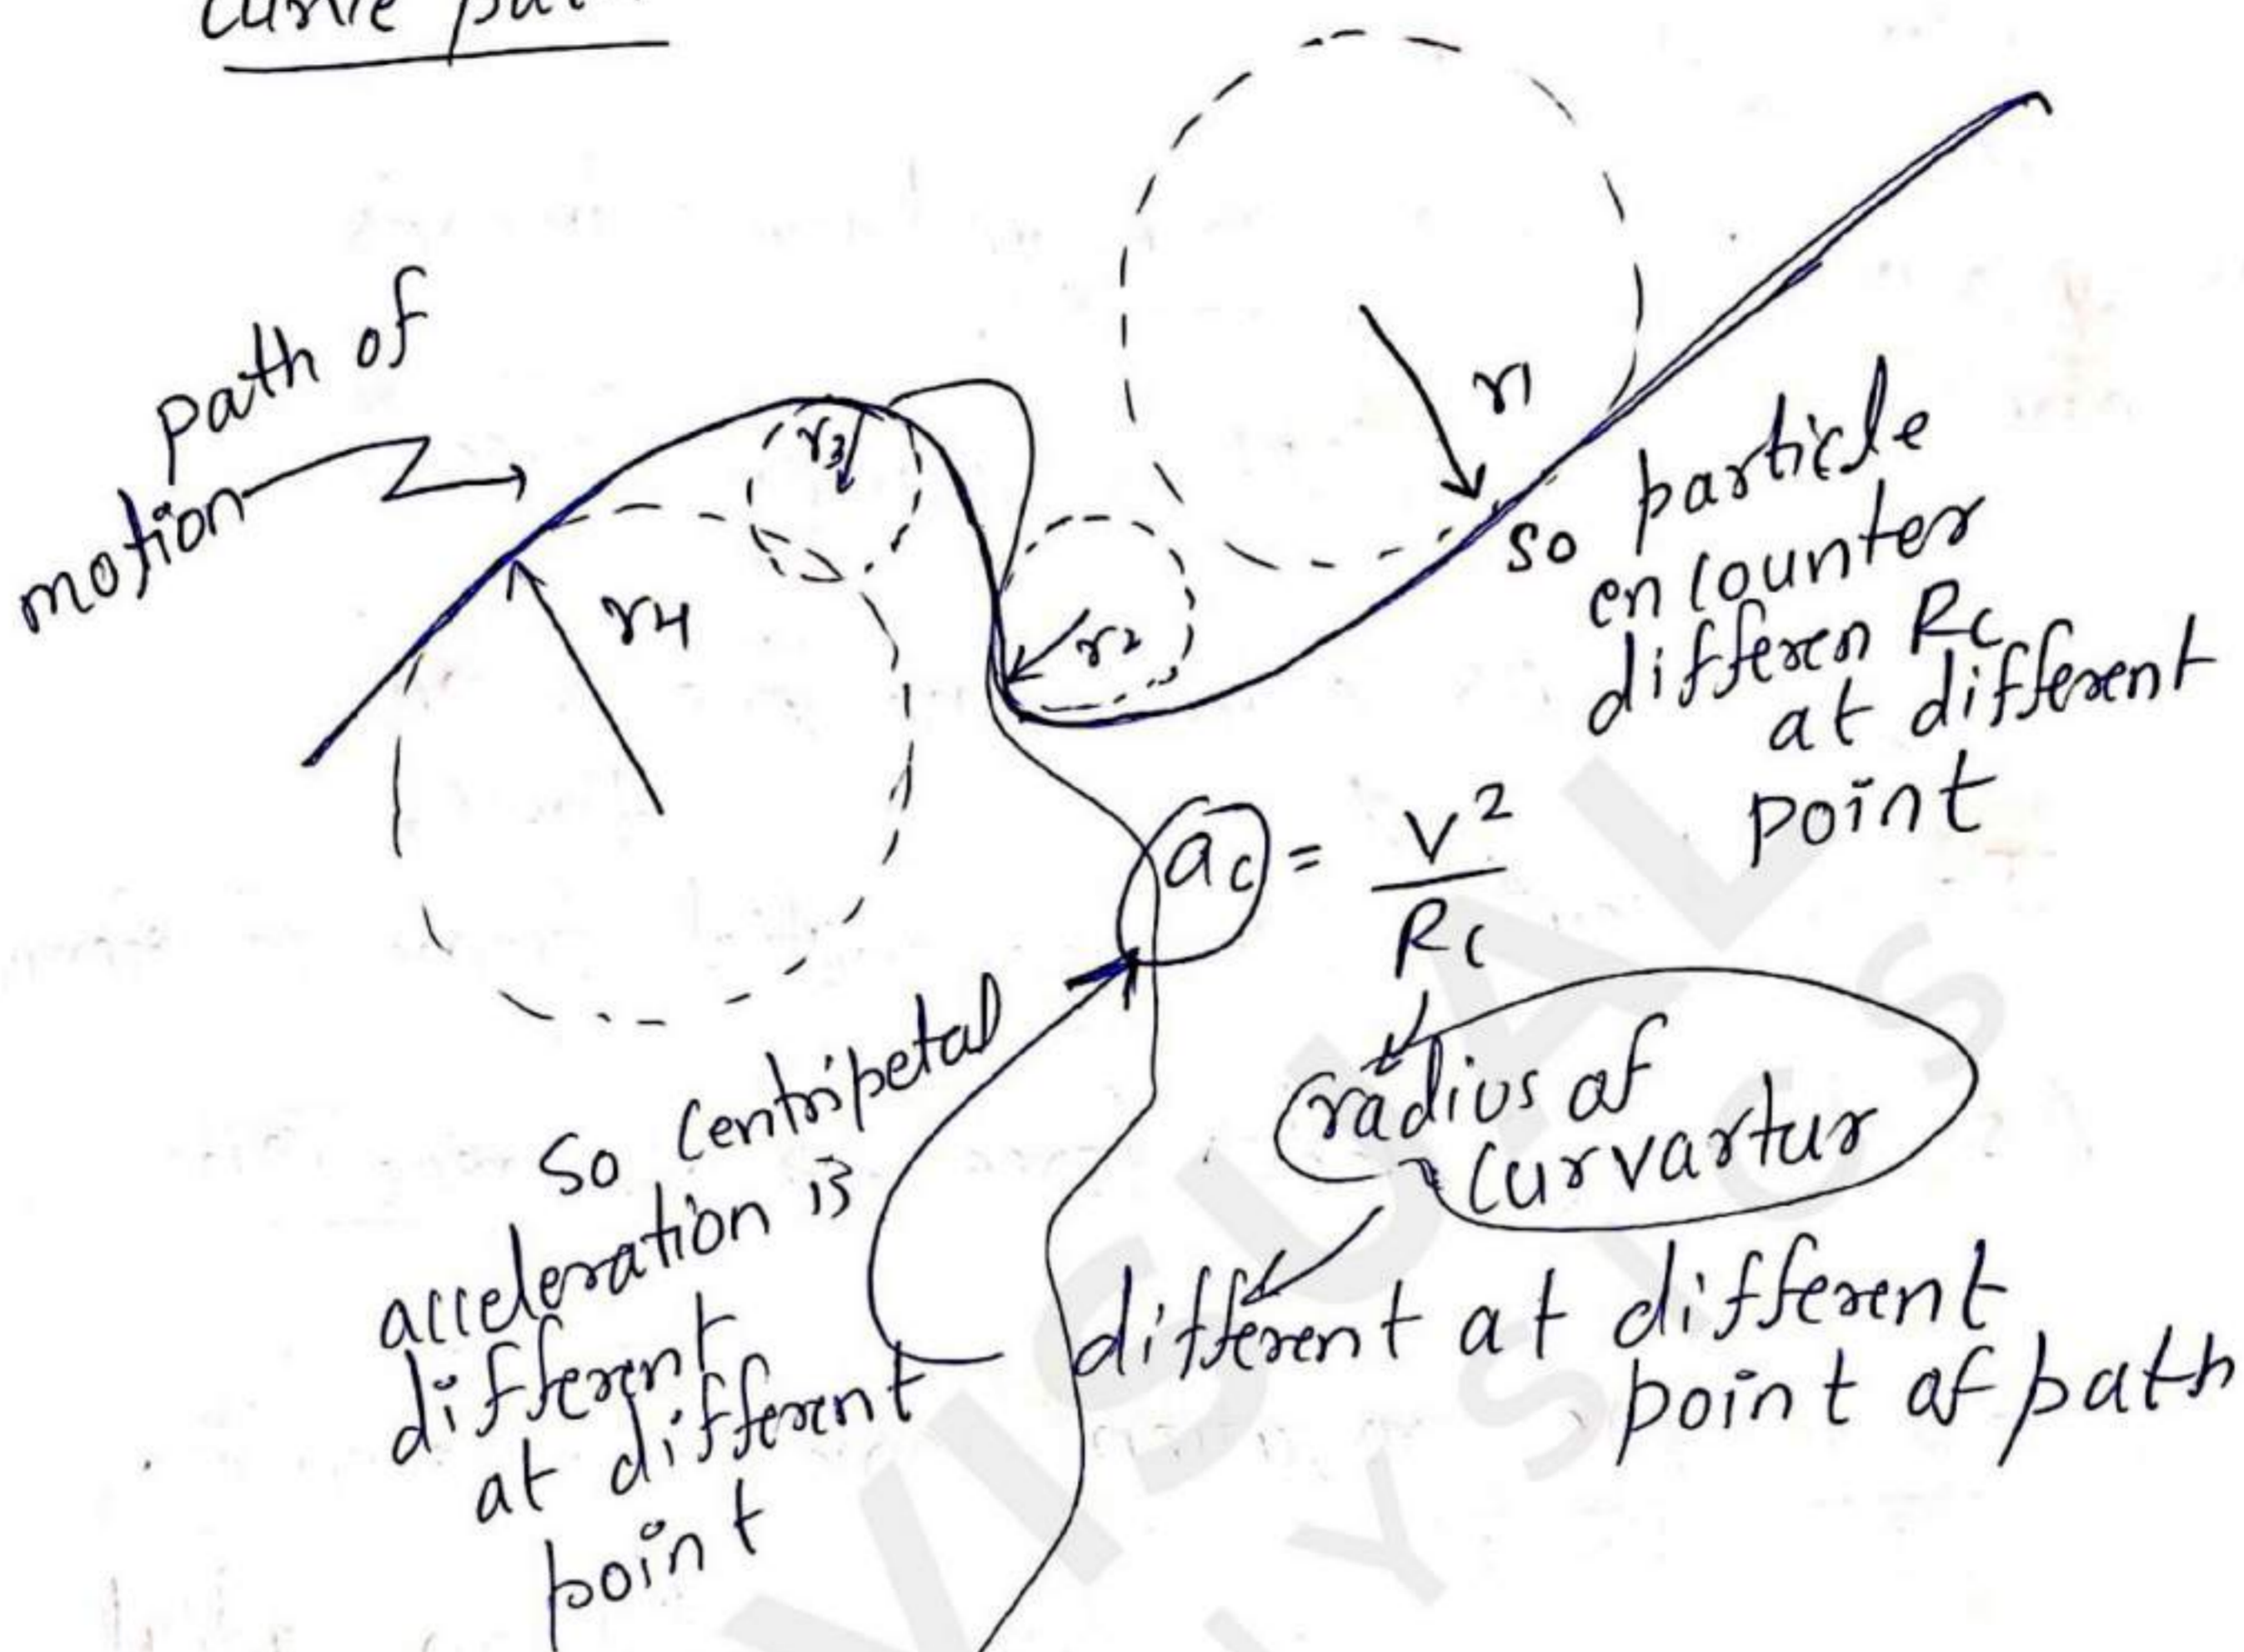 path of
motion
r1
r2
r3
r4
so particle
encounter
differen Rc
at different
point
ac = v²
Rc
radius of
curvartur
different at different
point of path
so centripetal
acceleration is
different
at different
point
VISUAL